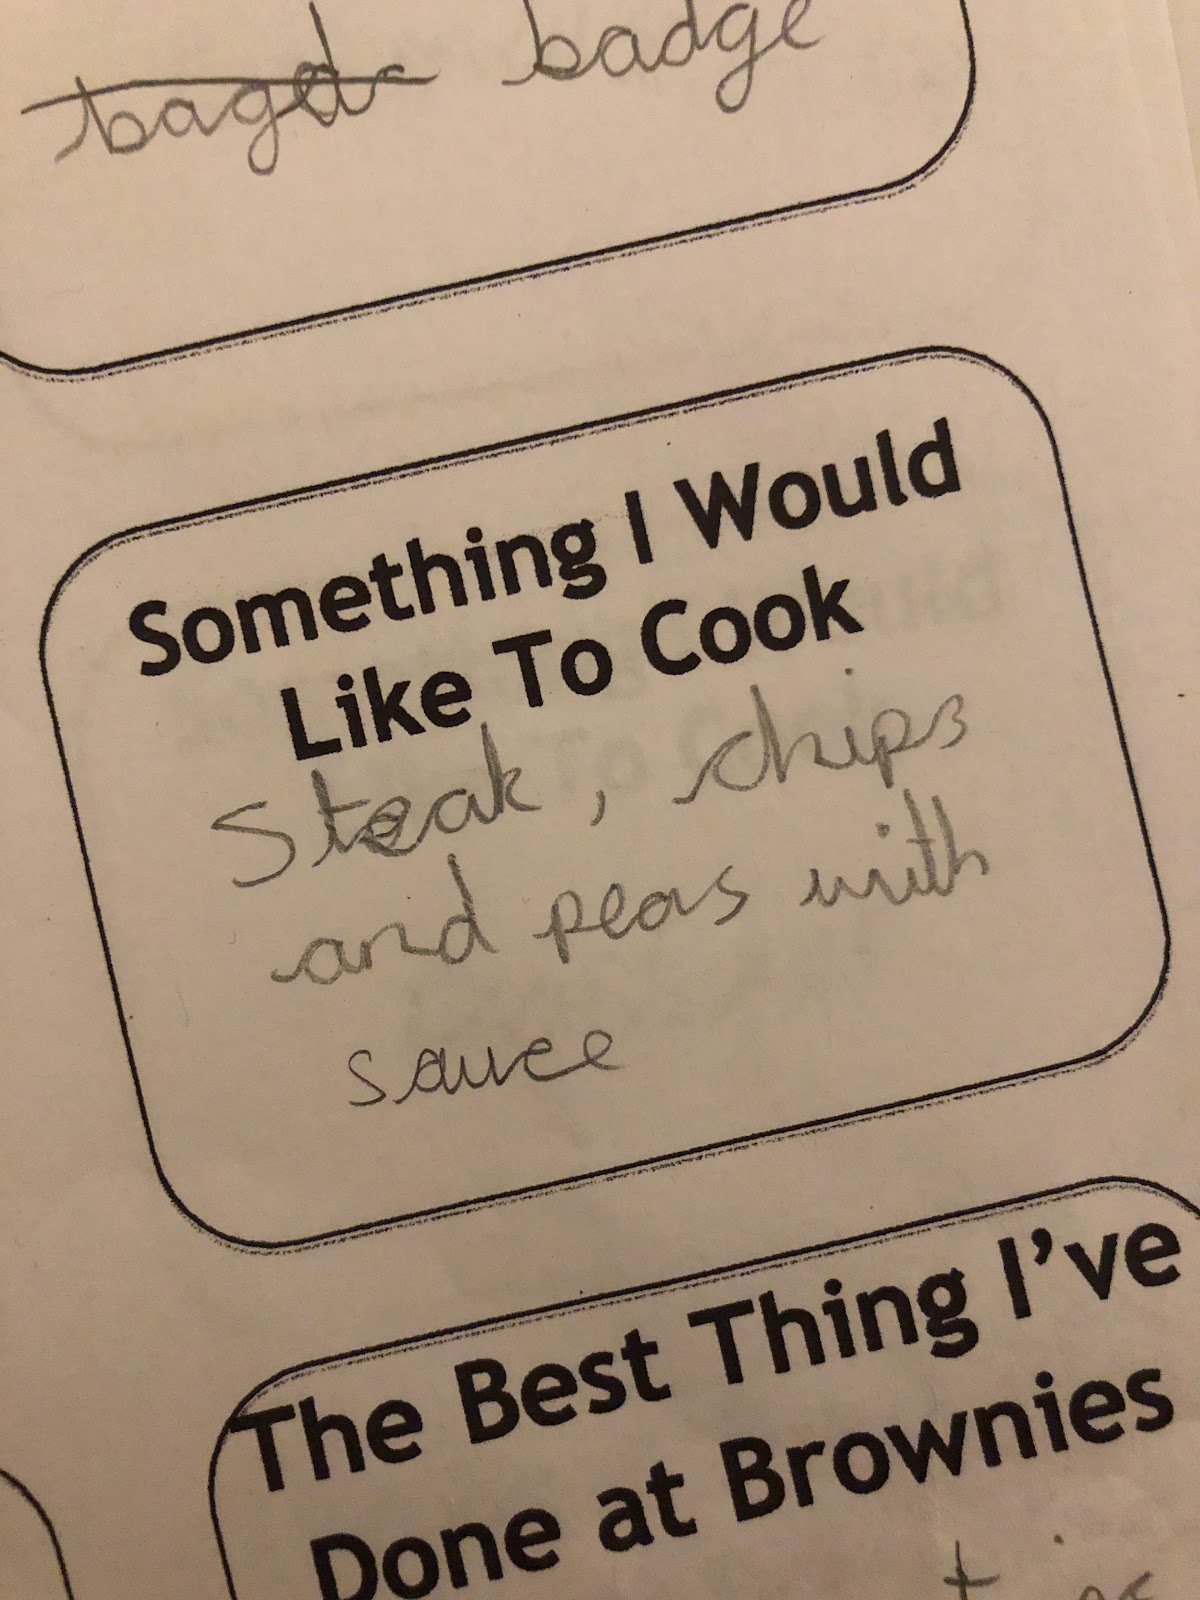 bagd badge
Something I Would
Like To Cook
Steak, chips
and peas with
sauce
The Best Thing I've
Done at Brownies